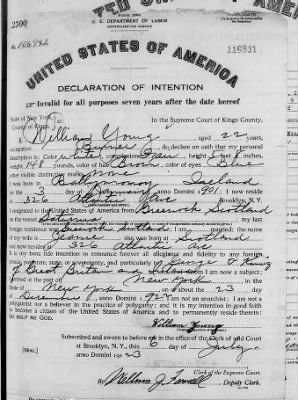 2300
Form 2203
U. S. DEPARTMENT OF LABOR
NATURALIZATION SERVICE
No. 166782
116931
UNITED STATES OF AMERICA
DECLARATION OF INTENTION
Invalid for all purposes seven years after the date hereof
State of New York,
County of Kings,
In the Supreme Court of Kings County.
I, William Young, aged 22 years,
occupation, do declare on oath that my personal
description is: Color white, complexion Fair, height feet inches,
weight 141 pounds, color of hair Brown, color of eyes Blue
other visible distinctive marks None
I was born in Ballymoney Ireland
on the 3 day of January, anno Domini 1901. I now reside
at 326 Atlantic Ave Brooklyn, N. Y.
I emigrated to the United States of America from Greenock Scotland
on the vessel; my last
foreign residence was Scotland. I am married; the name
of my wife is; she was born in Scotland
and now resides at 326 Atlantic Ave
It is my bona fide intention to renounce forever all allegiance and fidelity to any foreign
prince, potentate, state, or sovereignty, and particularly to George V King
of Great Britain and Ireland, of whom I am now a subject;
I arrived at the port of New York, in the
State of New York, on or about the 23 day
of December, anno Domini 1922; I am not an anarchist; I am not a
polygamist nor a believer in the practice of polygamy; and it is my intention in good faith
to become a citizen of the United States of America and to permanently reside therein:
SO HELP ME GOD.
William Young
Subscribed and sworn to before me in the office of the Clerk of said Court
at Brooklyn, N. Y., this 6 day of July
[SEAL] anno Domini 1923
Clerk of the Supreme Court.
By Deputy Clerk.